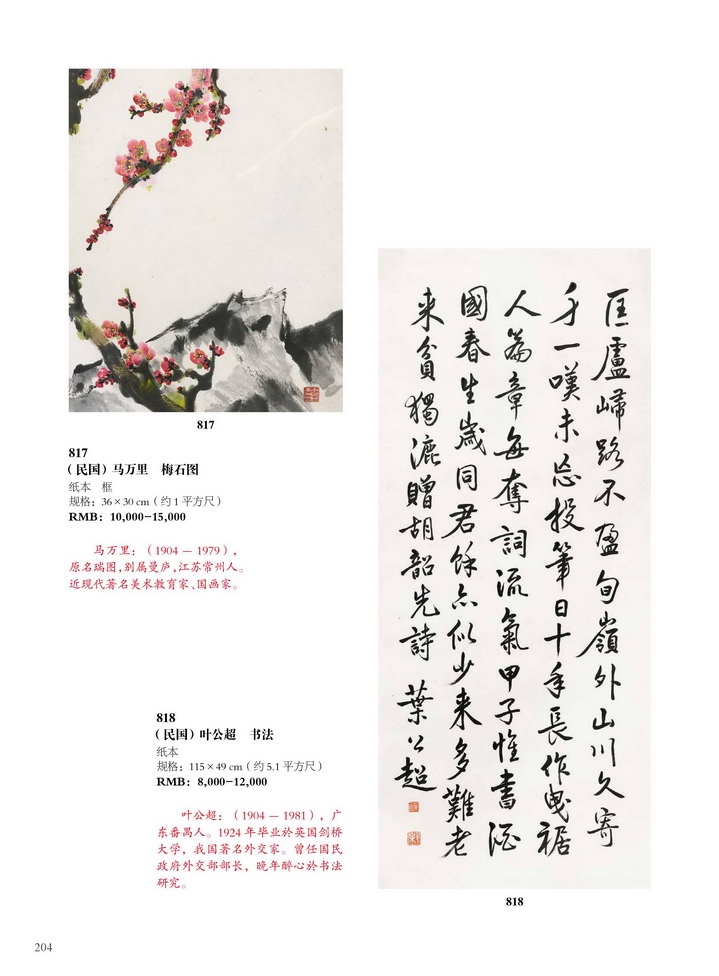 817
817
(民国)马万里 梅石图
纸本 框
规格:36×30 cm(约1平方尺)
RMB:10,000–15,000
马万里:(1904 — 1979),
原名瑞图,别属曼庐,江苏常州人。
近现代著名美术教育家、国画家。
匡廬歸路不盈旬嶺外山川久寄
身一嘆未忘投筆日十年長作曳裾
人篇章每奪詞流氣甲子惟書酒
國春生歲同君餘亦似少来多難老
来貧獨漉贈胡韶先詩 葉公超
818
818
(民国)叶公超 书法
纸本
规格:115×49 cm(约5.1平方尺)
RMB:8,000–12,000
叶公超:(1904 — 1981),广
东番禺人。1924年毕业於英国剑桥
大学,我国著名外交家。曾任国民
政府外交部部长,晚年醉心於书法
研究。
204